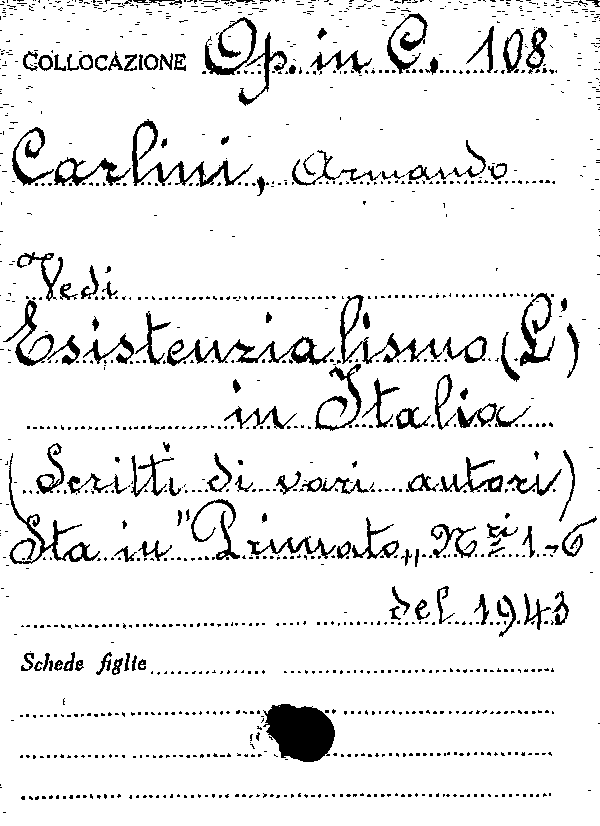 COLLOCAZIONE Op. in C. 108
Carlini, Armando
Vedi
Esistenzialismo (L')
in Italia
(Scritti di vari autori)
Sta in "Primato„ Nri 1-6
del 1943
Schede figlie